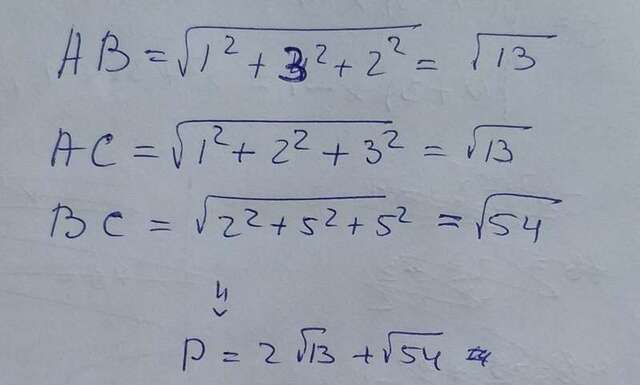 AB = √(1² + 3² + 2²) = √13
AC = √(1² + 2² + 3²) = √13
BC = √(2² + 5² + 5²) = √54
4
P = 2√13 + √54